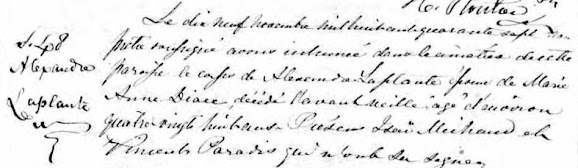 S. 48
Alexandre
Laplante
Le dix neuf novembre mil huit cent quarante sept nous
prêtre soussigné avons inhumé dans le cimetière de cette
paroisse le corps de Alexandre Laplante époux de Marie
Anne Diace décédé l'avant veille agé d'environ
quatre vingt huit ans. Présens Isaï Michaud et
Vincent Paradis qui n'ont su signer